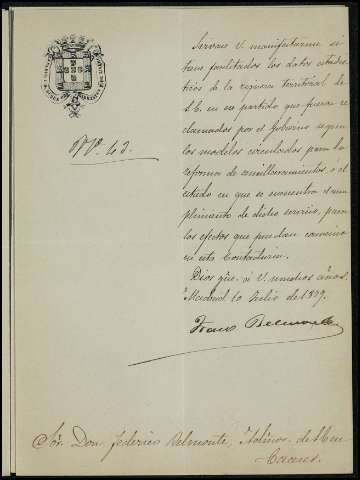 Nº. 43.
Sírvase V. manifestarme si
han facilitado los datos estadís-
ticos de la riqueza territorial de
S.E. en su partido que fueron re
clamados por el Gobierno segun
los modelos circulados para la
reforma de amillaramientos, ó el
estado en que se encuentra el cum
plimiento de dicho servicio, para
los efectos que puedan convenir
á esta Contaduria.
Dios gûe. á V. muchos años.
Madrid 10 Julio de 1879.
Franco Belmonte
Sor. Don Federico Belmonte, Molinos de